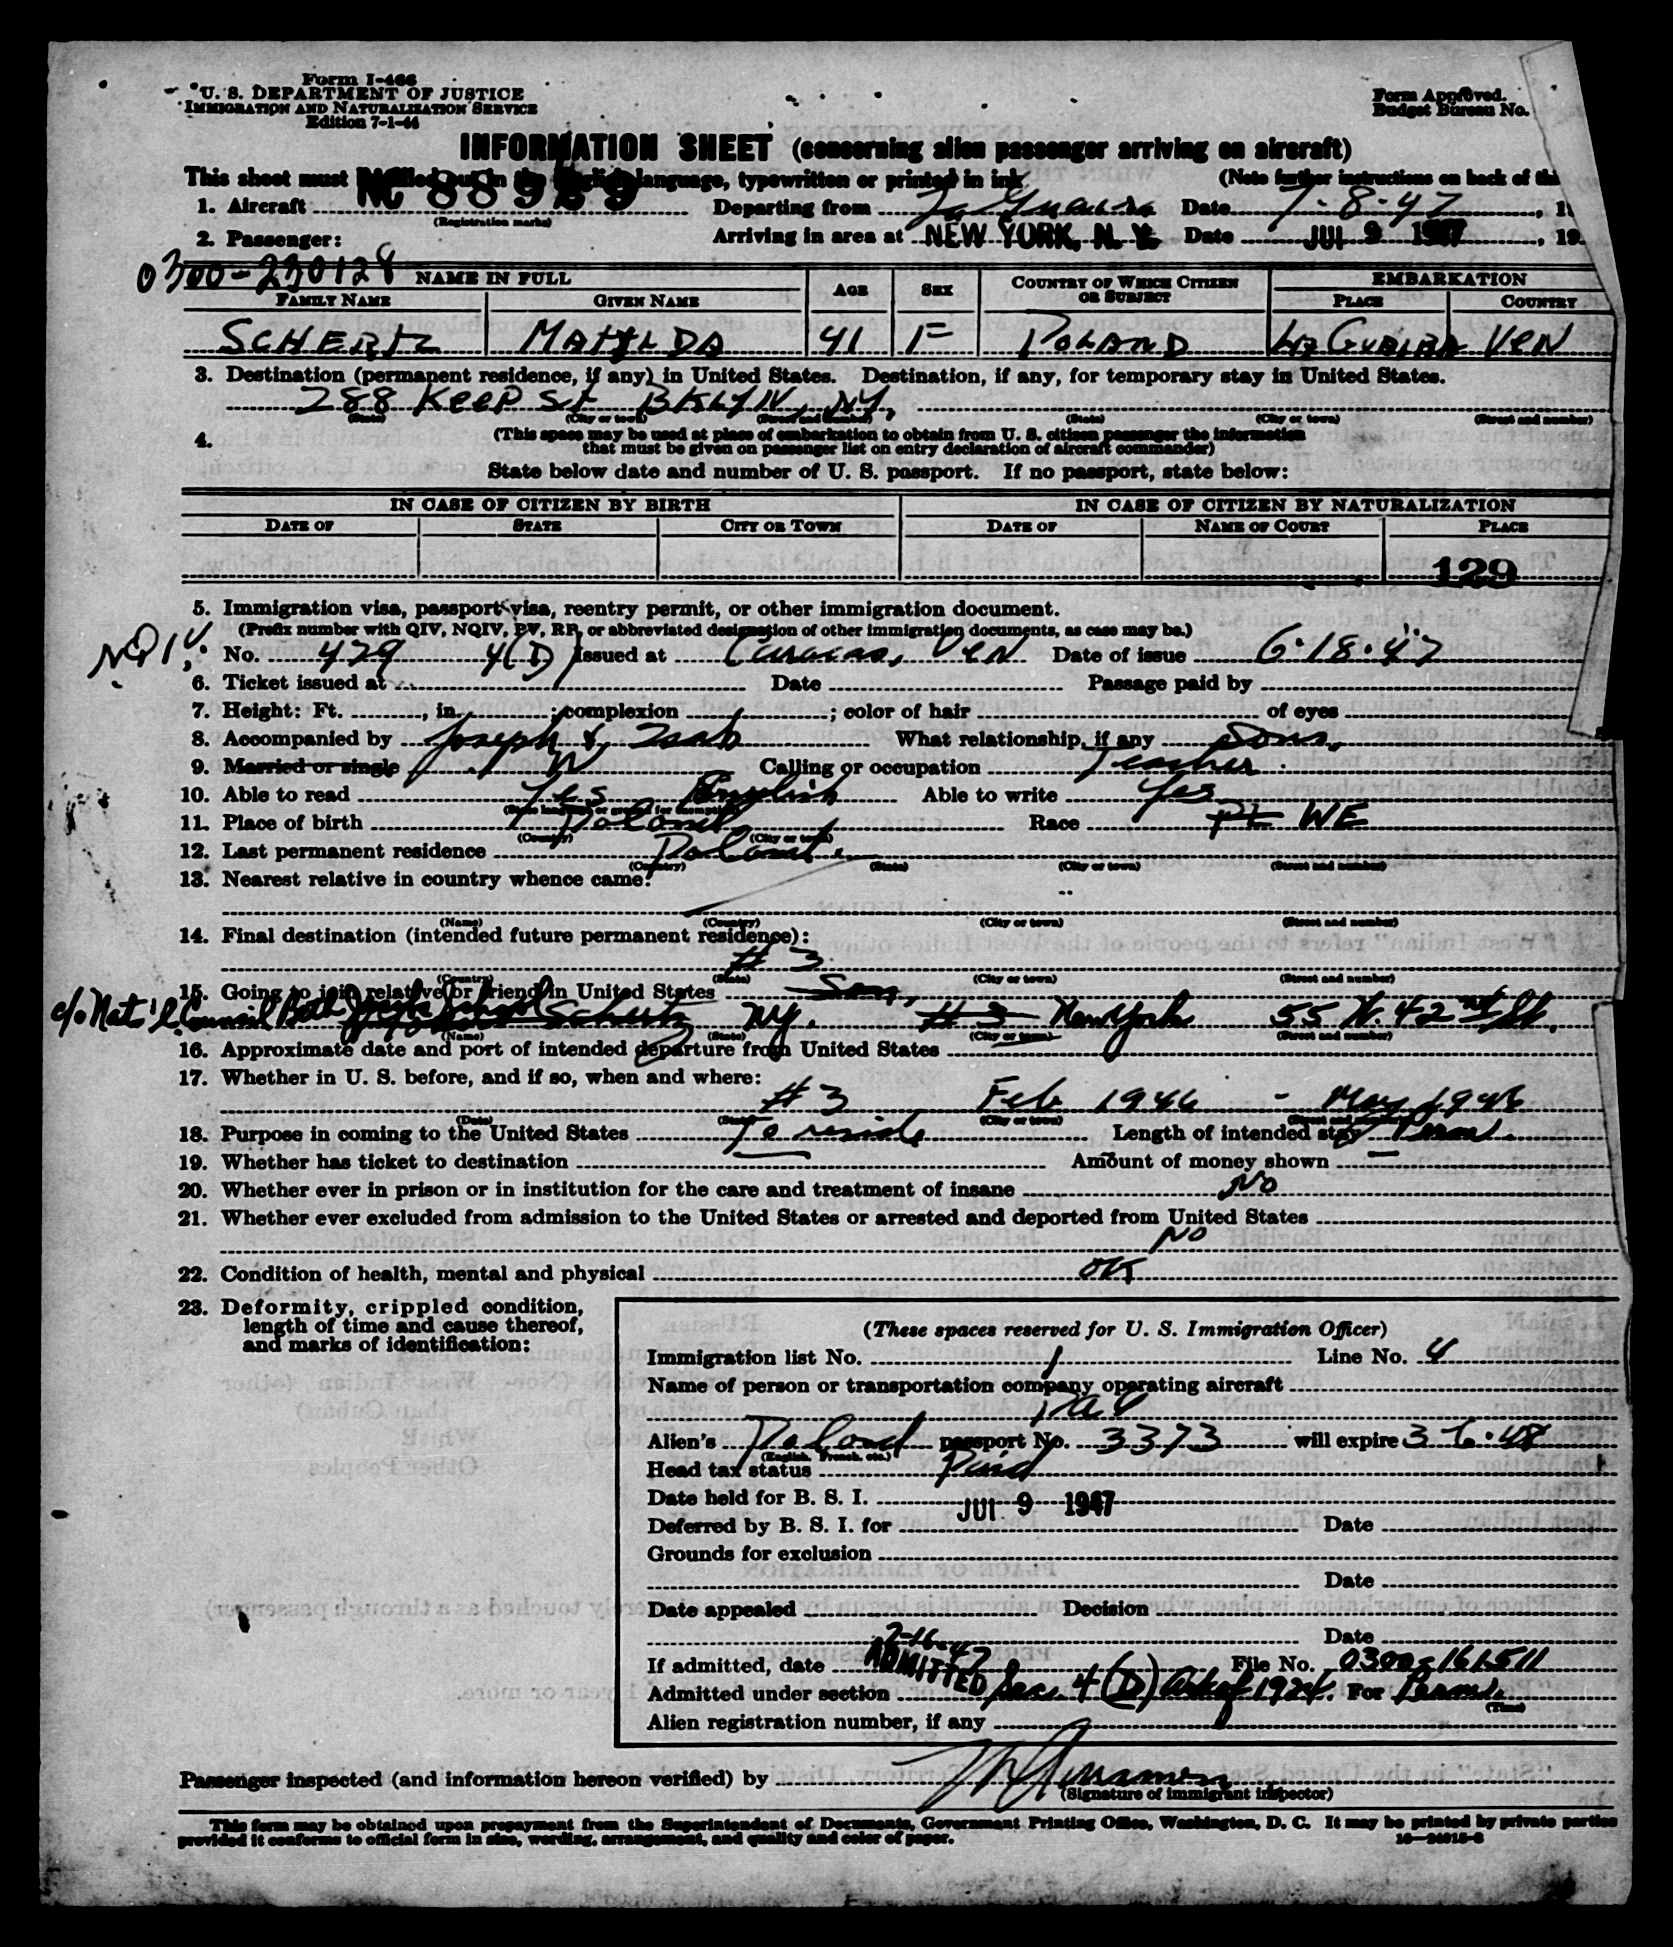 Form I-466
U. S. DEPARTMENT OF JUSTICE
IMMIGRATION AND NATURALIZATION SERVICE
Edition 7-1-44
Form Approved.
Budget Bureau No.
INFORMATION SHEET (concerning alien passenger arriving on aircraft)
This sheet must language, typewritten or printed in ink (Note further instructions on back of
1. Aircraft NC 88959 Departing from La Guaira Date 7-8-47, 1
(Registration marks)
2. Passenger: Arriving in area at NEW YORK, N. Y. Date JUL 9 1947, 19
0300-230128
NAME IN FULL AGE SEX COUNTRY OF WHICH CITIZEN OR SUBJECT EMBARKATION
FAMILY NAME GIVEN NAME PLACE COUNTRY
SCHERTZ MATYLDA 41 F POLAND LA GUAIRA VEN
3. Destination (permanent residence, if any) in United States. Destination, if any, for temporary stay in United States.
288 KEEP ST BKLYN, NY,
(State) (City or town) (Street and number) (State) (City or town) (Street and number)
4. (This space may be used at place of embarkation to obtain from U. S. citizen passenger the information
that must be given on passenger list on entry declaration of aircraft commander)
State below date and number of U. S. passport. If no passport, state below:
IN CASE OF CITIZEN BY BIRTH IN CASE OF CITIZEN BY NATURALIZATION
DATE OF STATE CITY OR TOWN DATE OF NAME OF COURT PLACE
129
5. Immigration visa, passport visa, reentry permit, or other immigration document.
(Prefix number with QIV, NQIV, PV, RP, or abbreviated designation of other immigration documents, as case may be.)
NQIV No. 429 4(D) Issued at Caracas, Ven Date of issue 6-18-47
6. Ticket issued at Date Passage paid by
7. Height: Ft. , in. ; complexion ; color of hair of eyes
8. Accompanied by Joseph & What relationship, if any Sons,
9. Married or single W Calling or occupation Teacher
10. Able to read Yes English Able to write Yes
11. Place of birth Poland Race PL WE
(Country) (City or town)
12. Last permanent residence Poland.
(Country) (State) (City or town) (Street and number)
13. Nearest relative in country whence came:
(Name) (Country) (City or town) (Street and number)
14. Final destination (intended future permanent residence):
# 3
(Country) (State) (City or town) (Street and number)
15. Going to join relative or friend in United States Son,
c/o Nat'l Council Beth Schertz NY. # 3 New York 55 W. 42nd St.
(Name) (State) (City or town) (Street and number)
16. Approximate date and port of intended departure from United States
17. Whether in U. S. before, and if so, when and where:
# 3 Feb 1946 - May 1946
(Date) (State) (City or town) (Street and number)
18. Purpose in coming to the United States To reside Length of intended stay Perm.
19. Whether has ticket to destination Amount of money shown
20. Whether ever in prison or in institution for the care and treatment of insane No
21. Whether ever excluded from admission to the United States or arrested and deported from United States
No
22. Condition of health, mental and physical OK
23. Deformity, crippled condition,
length of time and cause thereof,
and marks of identification:
(These spaces reserved for U. S. Immigration Officer)
Immigration list No. 1 Line No. 4
Name of person or transportation company operating aircraft
Alien's Poland passport No. 3373 will expire 3-6-48
(English, French, etc.)
Head tax status Paid
Date held for B. S. I. JUL 9 1947
Deferred by B. S. I. for Date
Grounds for exclusion
Date
Date appealed Decision
Date
If admitted, date 7-16-47 ADMITTED File No. 0300-161511
Admitted under section Sec. 4 (D) Act of 1924. For Perm.
(Time)
Alien registration number, if any
Passenger inspected (and information hereon verified) by
(Signature of immigrant inspector)
This form may be obtained upon prepayment from the Superintendent of Documents, Government Printing Office, Washington, D. C. It may be printed by private parties
provided it conforms to official form in size, wording, arrangement, and quality and color of paper.